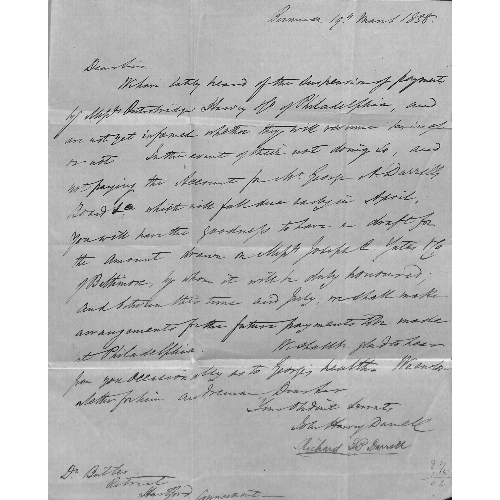 Bermuda 19th March 1838.
Dear Sir
We have lately heard of the suspension of payment
by Messrs Outerbridge Harvey & Co of Philadelphia, and
are not yet informed whether they will resume business
or not. In the event of their not doing so, and
not paying the Account for Mr George A Darrell's
Board &c which will fall due early in April,
You will have the goodness to have a draft for
the amount drawn on Messrs Joseph C Yates & Co
of Baltimore, by whom it will be duly honoured;
and between this time and July, we shall make
arrangements for the future payments to be made
at Philadelphia. We shall be glad to hear
from you occasionally as to George's health. We enclose
a letter for him and remain Dear Sir
Your Obedient Servants
John Harvey Darrell
Richard D Darrell
Dr Butler
Retreat
Hartford Connecticut